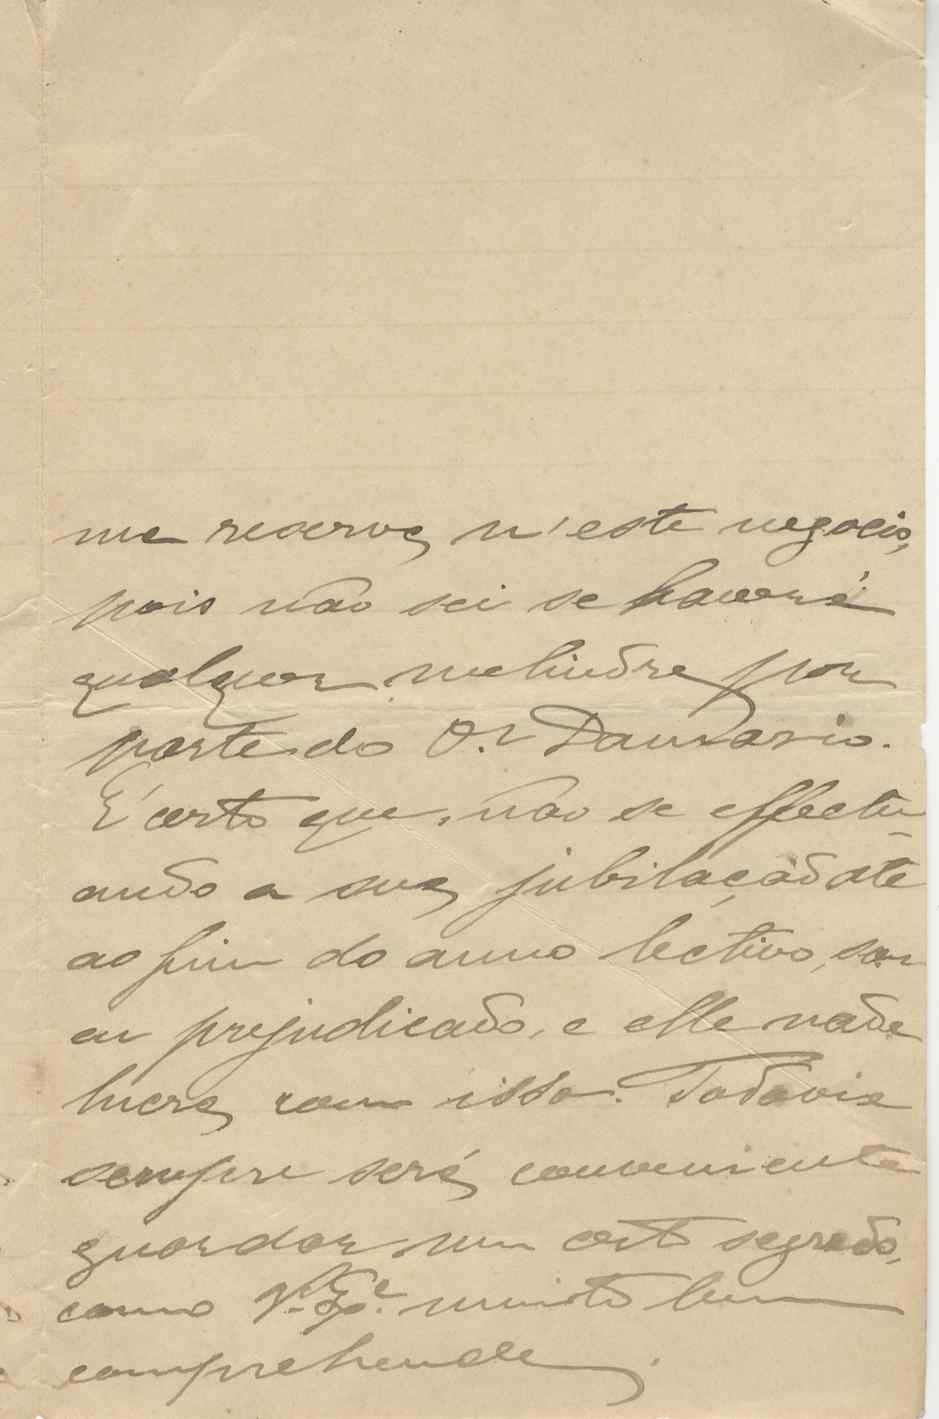 me reserva, n'este negocio,
pois não sei se haverá
qualquer melindre por
parte do Dr Damasio.
É certo que, não se effectu-
ando a sua jubilação até
ao fim do anno lectivo, sou
eu prejudicado, e elle nada
lucra com isso. Todavia
sempre será conveniente
guardar um certo segredo,
como V. Exª. muito bem
comprehende.